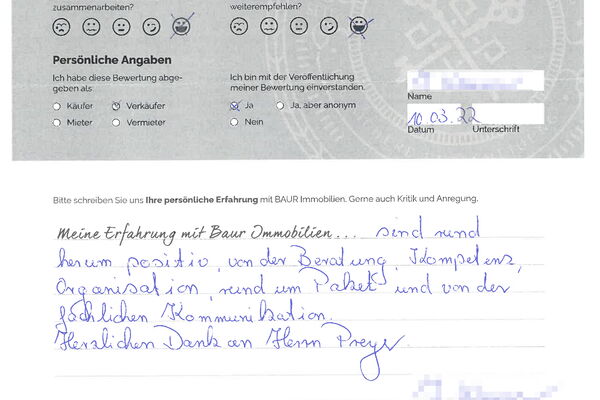 zusammenarbeiten?
weiterempfehlen?
Persönliche Angaben
Ich habe diese Bewertung abge-
geben als
Käufer Verkäufer
Mieter Vermieter
Ich bin mit der Veröffentlichung
meiner Bewertung einverstanden.
Ja Ja, aber anonym
Nein
Name
10.03.22
Datum Unterschrift
Bitte schreiben Sie uns Ihre persönliche Erfahrung mit BAUR Immobilien. Gerne auch Kritik und Anregung.
Meine Erfahrung mit Baur Immobilien... sind rund
herum positiv, von der Beratung, Kompetenz,
Organisation, rund um Paket und von der
fachlichen Kommunikation.
Herzlichen Dank an Herrn